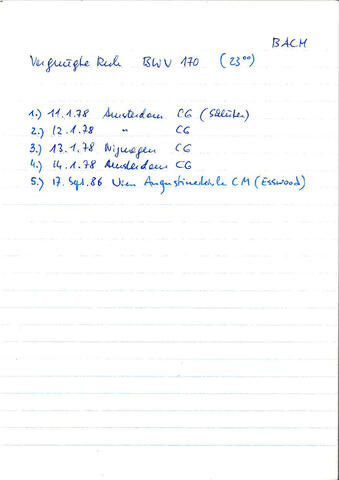 BACH
Vergnügte Ruh BWV 170 (23⁰⁰)
1.) 11.1.78 Amsterdam CG (Schlüter)
2.) 12.1.78 " CG
3.) 13.1.78 Nijmegen CG
4.) 14.1.78 Amsterdam CG
5.) 17. Sept. 86 Wien Augustinerkirche CM (Esswood)